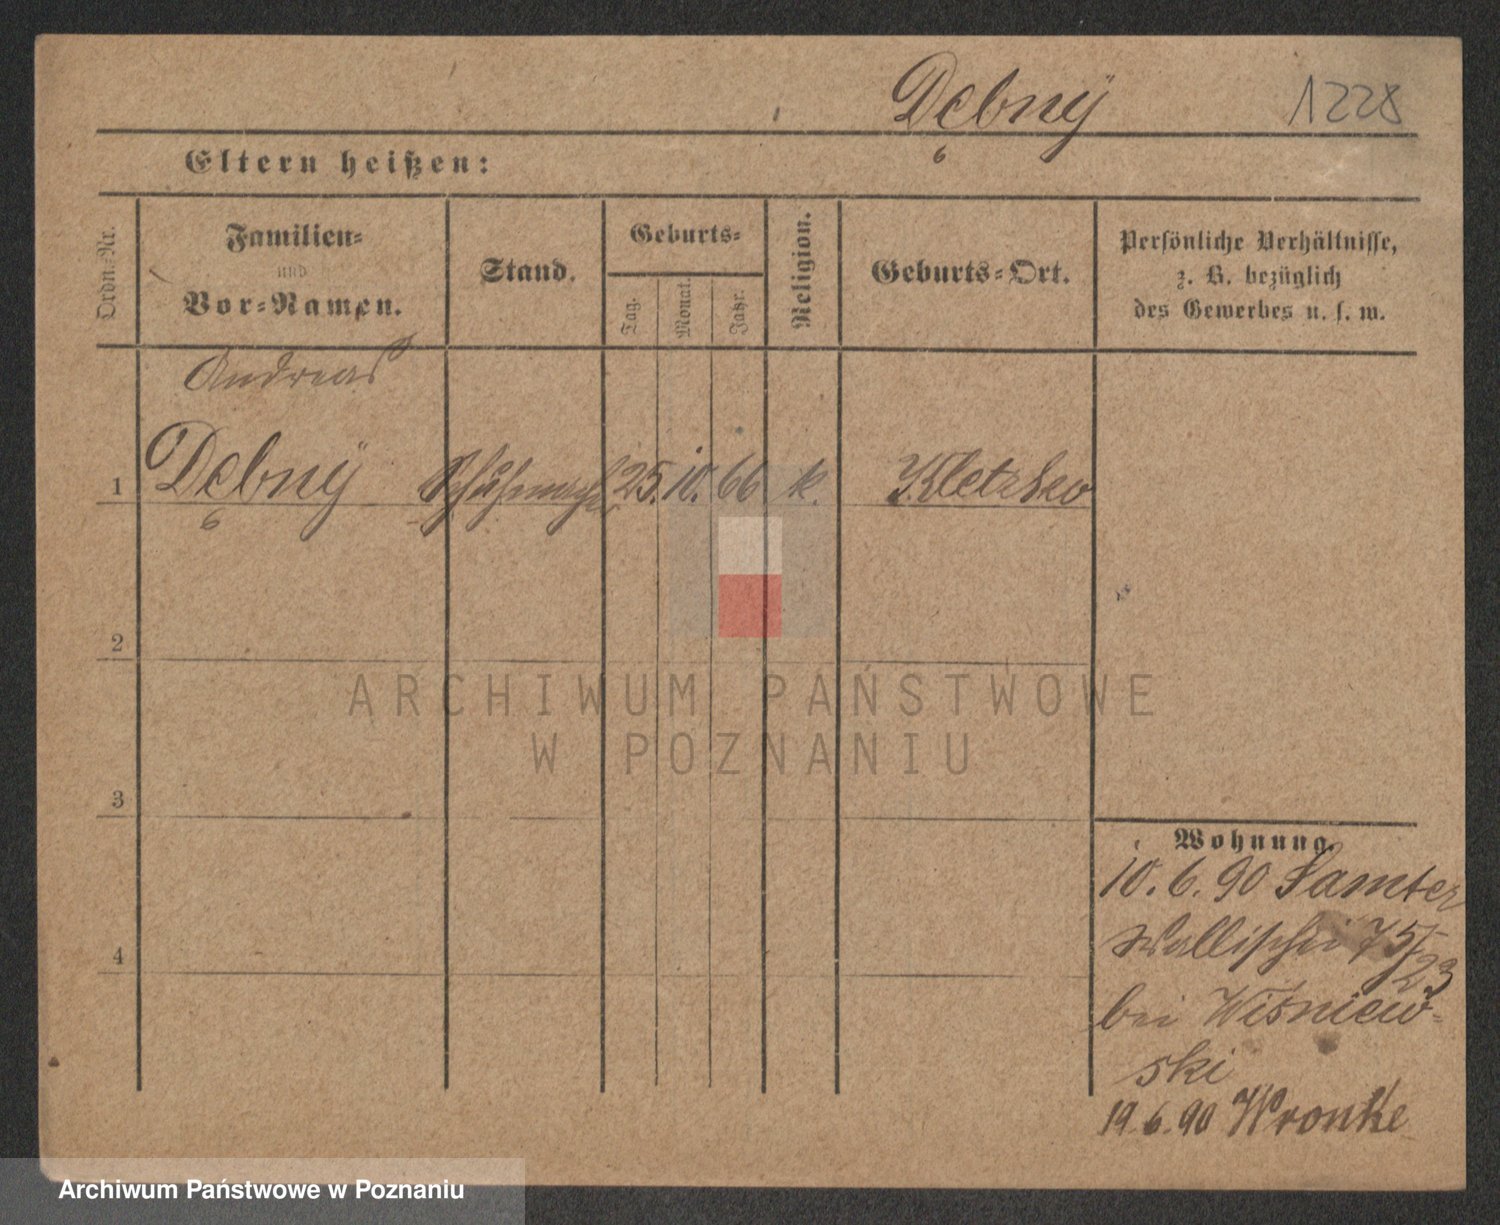 Dębnÿ 1228
Eltern heißen:
Ordn.-Nr.
Familien-
und
Vor-Namen.
Stand.
Geburts-
Tag.
Monat.
Jahr.
Religion.
Geburts-Ort.
Persönliche Verhältnisse,
z. B. bezüglich
des Gewerbes u. s. w.
Andreas
1 Dębnÿ Schuhmacher 25. 10. 66 k. Kletzko
2
3
4
Wohnung.
10. 6. 90 Samter
Wallischei 75/23
bei Wiśniew-
ski
19. 6. 90 Wronke
ARCHIWUM PAŃSTWOWE
W POZNANIU
Archiwum Państwowe w Poznaniu